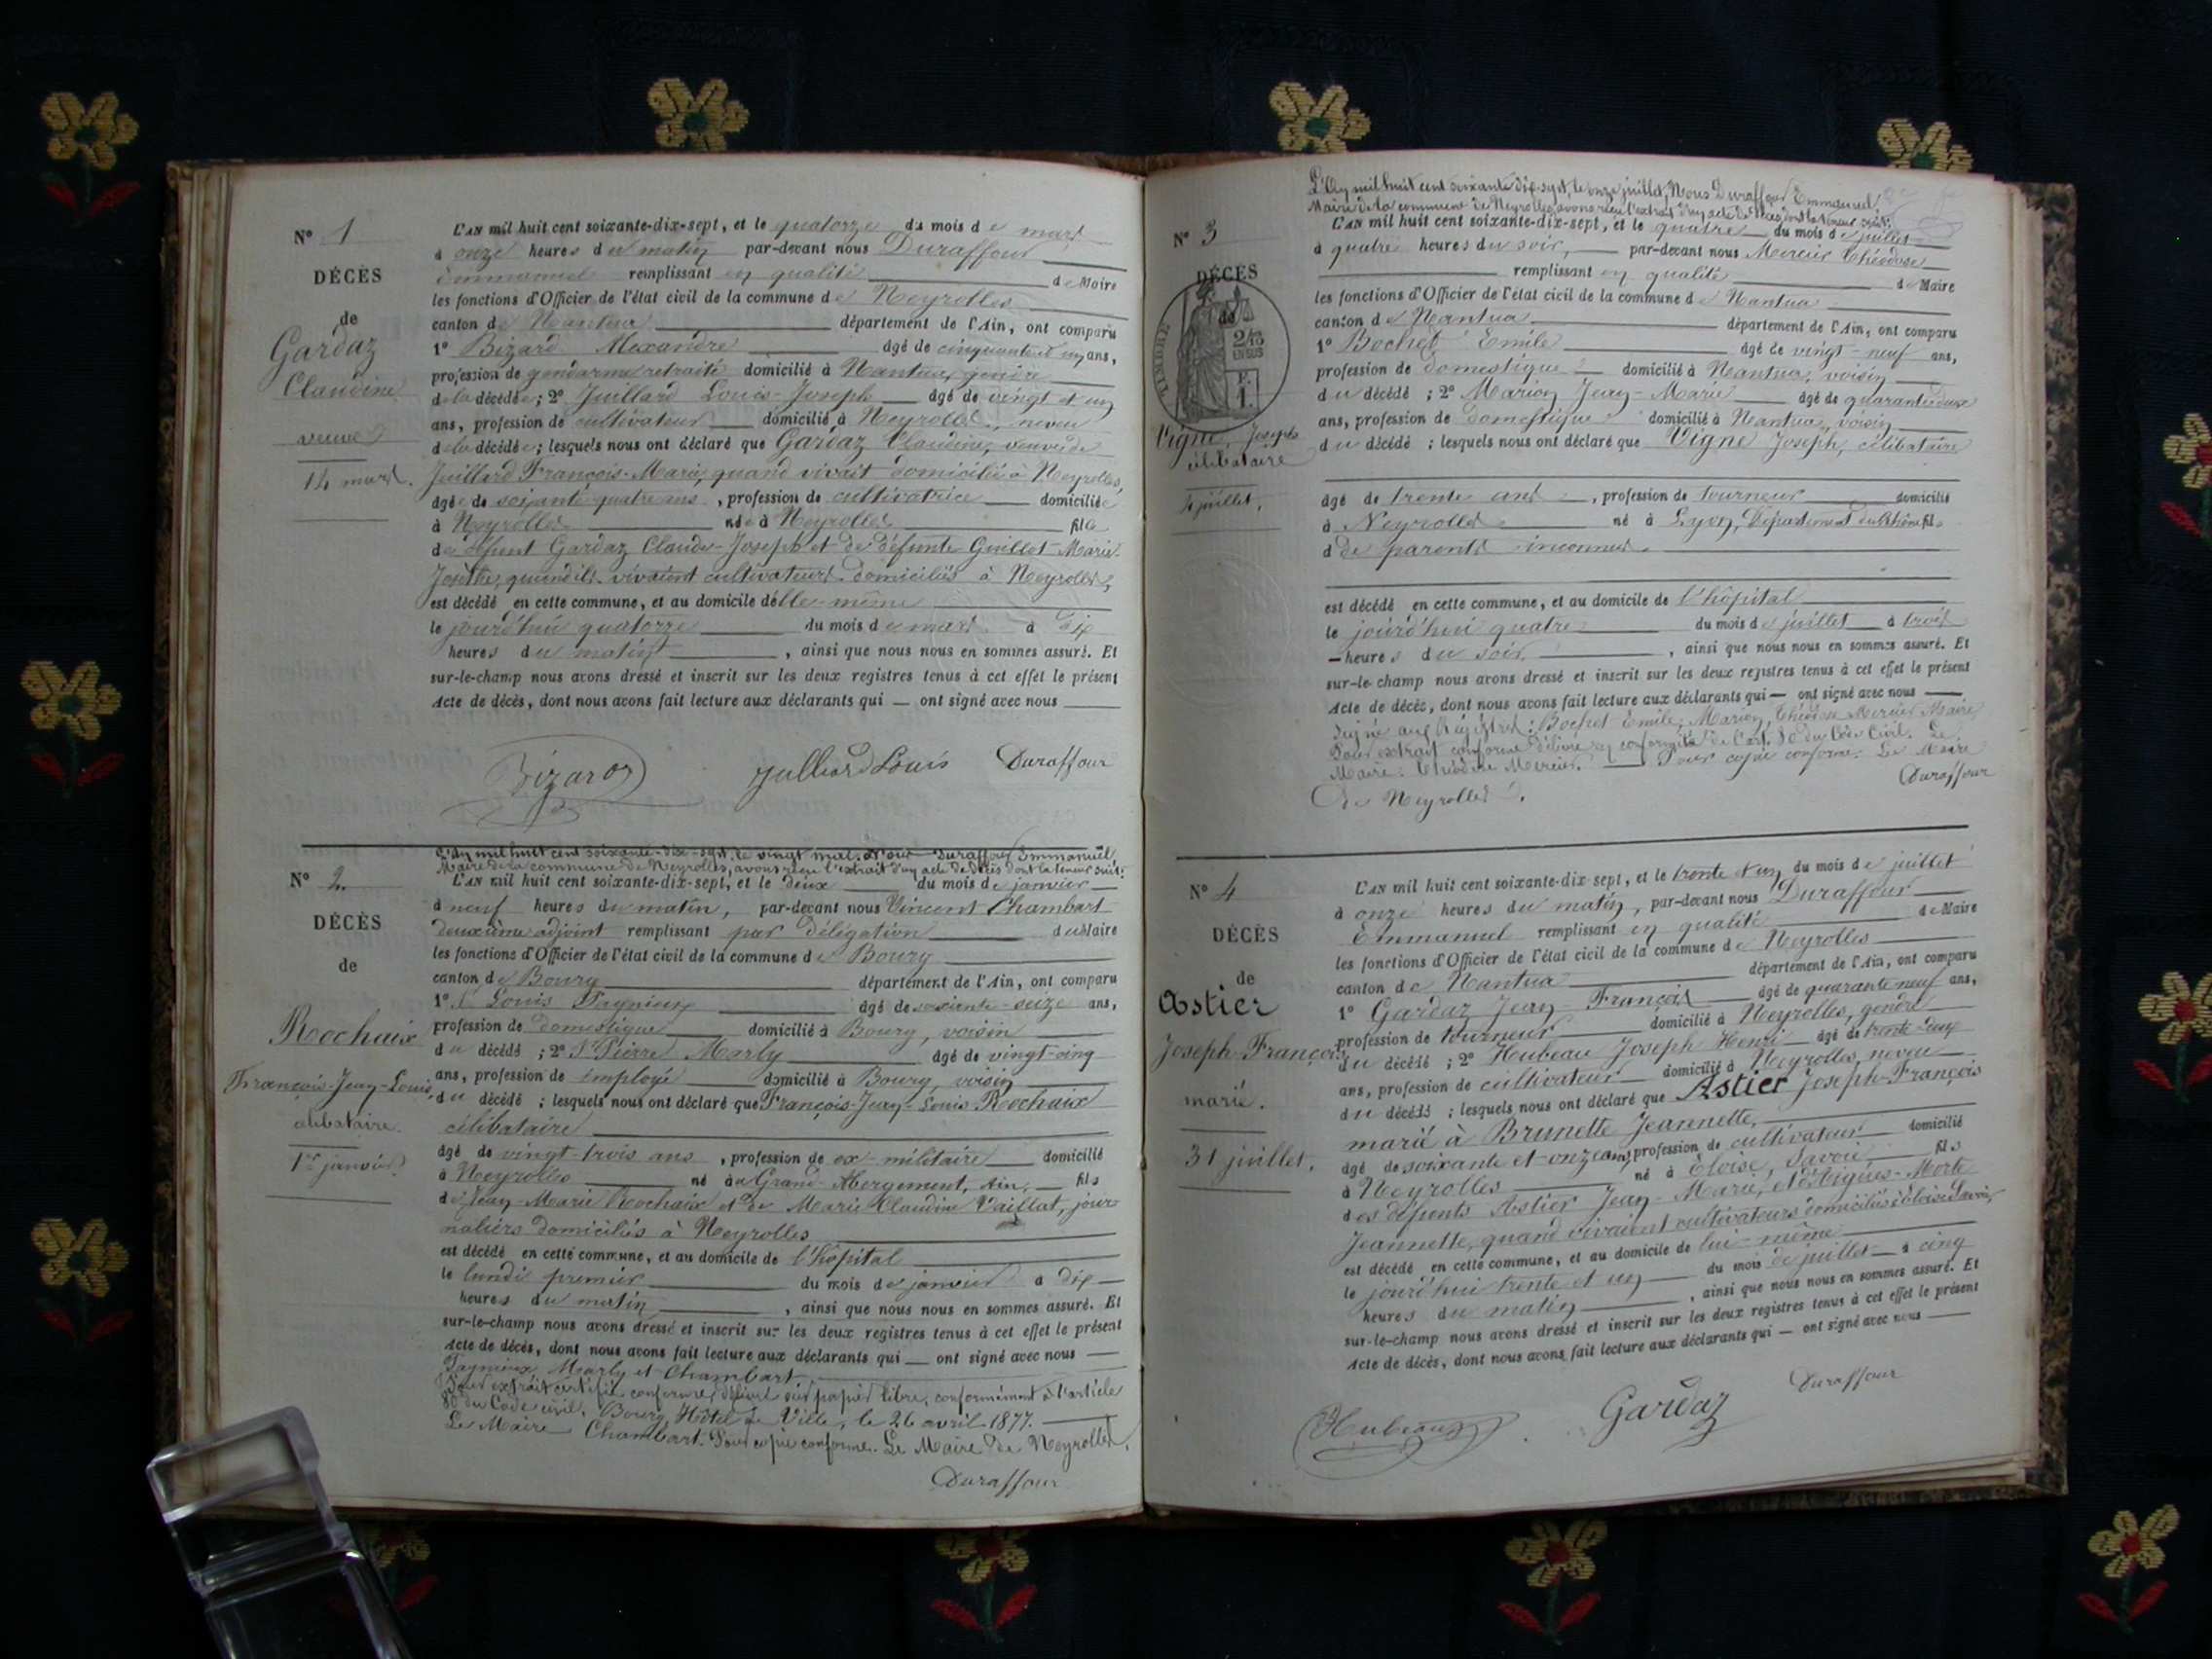 N° 1
DÉCÈS
de
Gardaz
Claudine
veuve
14 mars.
L'AN mil huit cent soixante-dix-sept, et le quatorze du mois de mars
à onze heures du matin par-devant nous Duraffour
Emmanuel remplissant en qualité de Maire
les fonctions d'Officier de l'état civil de la commune de Neyrolles
canton de Nantua département de l'Ain, ont comparu
1° Bizard Alexandre âgé de cinquante et un ans,
profession de gendarme retraité domicilié à Nantua, gendre
de la décédée; 2° Juillard Louis-Joseph âgé de vingt et un
ans, profession de cultivateur domicilié à Neyrolles, neveu
de la décédée; lesquels nous ont déclaré que Gardaz Claudine, veuve de
Juillard François-Marie, quand vivait domicilié à Neyrolles,
âgée de soixante-quatre ans, profession de cultivatrice domiciliée
à Neyrolles née à Neyrolles fille
de défunt Gardaz Claude-Joseph et de défunte Guillot Marie
Josèthe, quand ils vivaient cultivateurs domiciliés à Neyrolles,
est décédé en cette commune, et au domicile d'elle-même
le jourd'hui quatorze du mois de mars à dix
heures du matin, ainsi que nous nous en sommes assuré. Et
sur-le-champ nous avons dressé et inscrit sur les deux registres tenus à cet effet le présent
Acte de décès, dont nous avons fait lecture aux déclarants qui — ont signé avec nous
Bizard Julliard Louis Duraffour
N° 2
DÉCÈS
de
Rochaix
François-Jean-Louis,
célibataire.
1er janvier
L'an mil huit cent soixante-dix-sept, le vingt mai. Nous Duraffour Emmanuel
Maire de la commune de Neyrolles, avons reçu l'extrait d'un acte de décès dont la teneur suit:
L'AN mil huit cent soixante-dix-sept, et le deux du mois de janvier
à neuf heures du matin, par-devant nous Vincent Chambart
deuxième adjoint remplissant par délégation du Maire
les fonctions d'Officier de l'état civil de la commune de Bourg
canton de Bourg département de l'Ain, ont comparu
1° Louis Tagnieux âgé de soixante-seize ans,
profession de domestique domicilié à Bourg, voisin
du décédé; 2° Pierre Marly âgé de vingt-cinq
ans, profession de employé domicilié à Bourg, voisin
du décédé; lesquels nous ont déclaré que François-Jean-Louis Rochaix
célibataire
âgé de vingt-trois ans, profession de ex-militaire domicilié
à Neyrolles né au Grand-Abergement, Ain, fils
de Jean-Marie Rochaix et de Marie Claudine Vaillat, jour
naliers domiciliés à Neyrolles
est décédé en cette commune, et au domicile de l'hôpital
le lundi premier du mois de janvier à dix
heures du matin, ainsi que nous nous en sommes assuré. Et
sur-le-champ nous avons dressé et inscrit sur les deux registres tenus à cet effet le présent
Acte de décès, dont nous avons fait lecture aux déclarants qui — ont signé avec nous —
Tagnieux, Marly et Chambart
Pour extrait certifié conforme, délivré sur papier libre, conformément à l'article
80 du Code civil. Bourg, Hôtel de Ville, le 26 avril 1877.
Le Maire Chambart. Pour copie conforme. Le Maire de Neyrolles,
Duraffour
L'An mil huit cent soixante dix-sept, le onze juillet, Nous Duraffour Emmanuel
Maire de la commune de Neyrolles, avons reçu l'extrait d'un acte de décès dont la teneur suit:
N° 3
DÉCÈS
de
TIMBRE
2/10
EN SUS
F.
1
Vigne, Joseph
célibataire
4 juillet.
L'AN mil huit cent soixante-dix-sept, et le quatre du mois de juillet
à quatre heures du soir, par-devant nous Mercier Théodose
remplissant en qualité de Maire
les fonctions d'Officier de l'état civil de la commune de Nantua
canton de Nantua département de l'Ain, ont comparu
1° Bochet Emile âgé de vingt-neuf ans,
profession de domestique domicilié à Nantua, voisin
du décédé; 2° Marion Jean-Marie âgé de quarante deux
ans, profession de domestique domicilié à Nantua, voisin
du décédé; lesquels nous ont déclaré que Vigne Joseph, célibataire
âgé de trente ans, profession de tourneur domicilié
à Neyrolles né à Lyon, Département du Rhône fils
d de parents inconnus.
est décédé en cette commune, et au domicile de l'hôpital
le jourd'hui quatre du mois de juillet à trois
heures du soir, ainsi que nous nous en sommes assuré. Et
sur-le-champ nous avons dressé et inscrit sur les deux registres tenus à cet effet le présent
Acte de décès, dont nous avons fait lecture aux déclarants qui — ont signé avec nous —
Signé aux Registres: Bochet Emile, Marion, Théodose Mercier Maire
Pour extrait conforme délivré en conformité de l'art. 80 du Code Civil. Le
Maire: Théodose Mercier. — Pour copie conforme: Le Maire
de Neyrolles. Duraffour
N° 4
DÉCÈS
de
Astier
Joseph-François
marié.
31 juillet.
L'AN mil huit cent soixante-dix-sept, et le trente et un du mois de juillet
à onze heures du matin, par-devant nous Duraffour
Emmanuel remplissant en qualité de Maire
les fonctions d'Officier de l'état civil de la commune de Neyrolles
canton de Nantua département de l'Ain, ont comparu
1° Gardaz Jean-François âgé de quarante neuf ans,
profession de tourneur domicilié à Neyrolles, gendre
du décédé; 2° Hubeau Joseph Henri âgé de trente-deux
ans, profession de cultivateur domicilié à Neyrolles, neveu
du décédé; lesquels nous ont déclaré que Astier Joseph-François
marié à Brunette Jeannette,
âgé de soixante et onze ans, profession de cultivateur domicilié
à Neyrolles né à Eloise, Savoie fils
des défunts Astier Jean-Marie, et d'Aigues-Morte
Jeannette, quand vivaient cultivateurs domiciliés à Eloise Savoie,
est décédé en cette commune, et au domicile de lui-même
le jourd'hui trente et un du mois de juillet à cinq
heures du matin, ainsi que nous nous en sommes assuré. Et
sur-le-champ nous avons dressé et inscrit sur les deux registres tenus à cet effet le présent
Acte de décès, dont nous avons fait lecture aux déclarants qui — ont signé avec nous
Hubeau Gardaz Duraffour